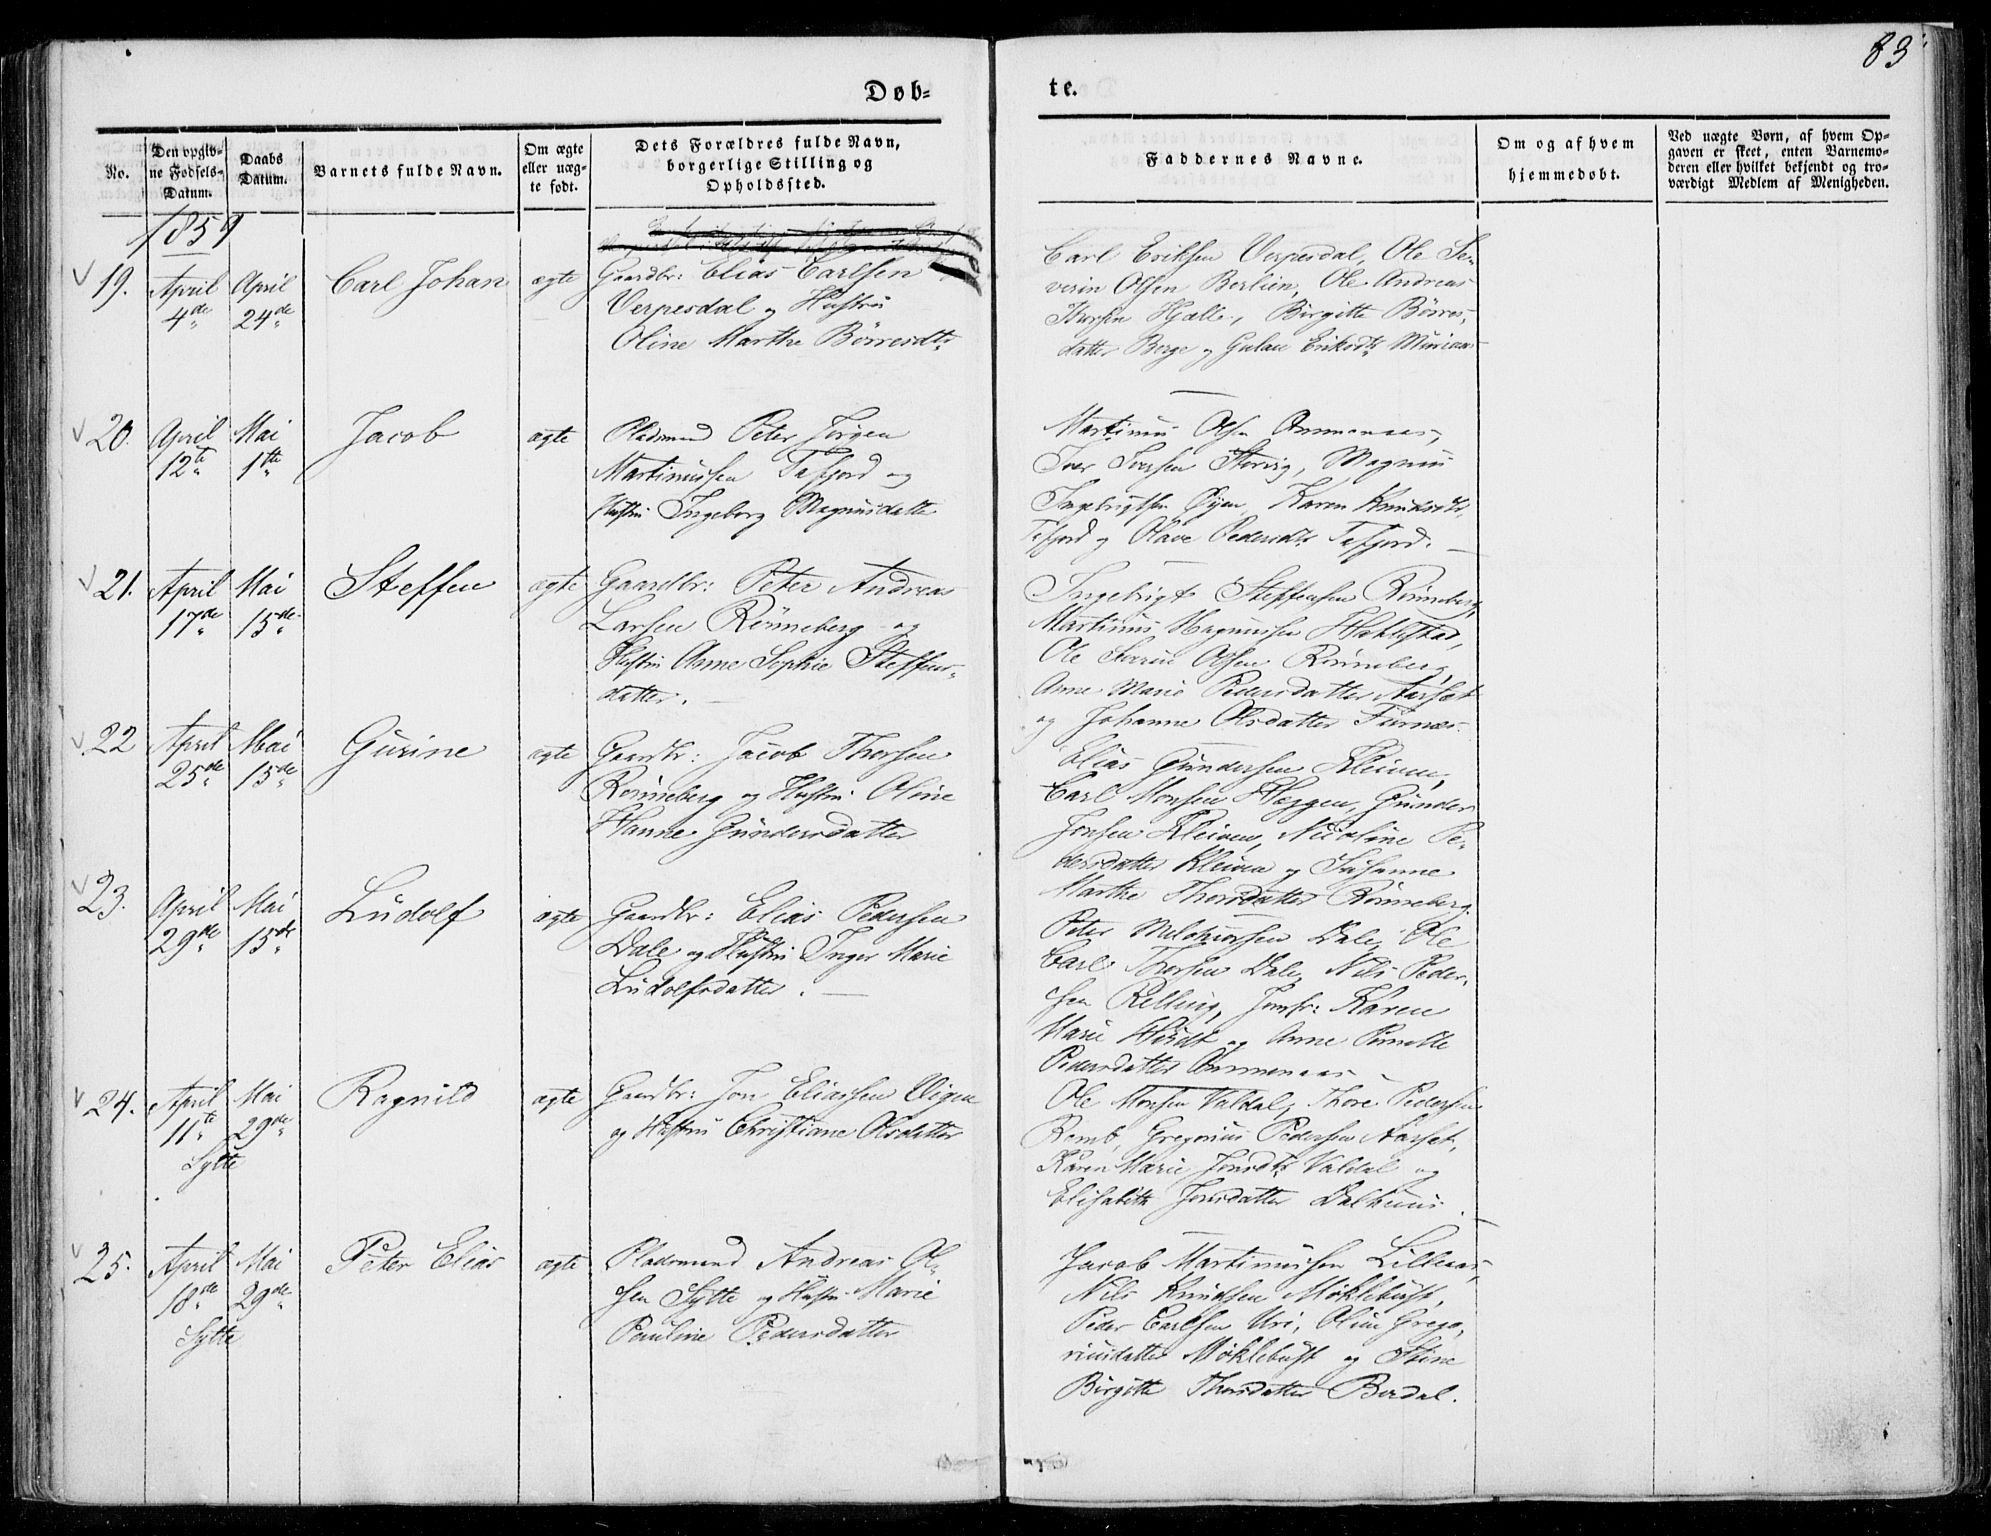 83
Døb-
te.
No.
Den opgiv-
ne Fødsels-
Datum.
Daabs
Datum.
Barnets fulde Navn.
Om ægte
eller uæg-
te født.
Dets Forældres fulde Navn,
borgerlige Stilling og
Opholdssted.
Faddernes Navne.
Om og af hvem
hjemmedøbt.
Ved uægte Børn, af hvem Op-
gaven er skeet, enten Barnemo-
deren eller hvilket bekjendt og tro-
værdigt Medlem af Menigheden.
1859
19.
April
4de
April
24de
Carl Johan
ægte
Gaardbr: Elias Carlsen
Verpesdal og Hustru
Oline Marthe Børresdtr
Carl Eriksen Verpesdal, Ole Se-
verin Olsen Berlien, Ole Andreas
Hjelle, Birgitte Børres-
datter Berge og Eriksdtr
20.
April
12te
Mai
1ste
Jacob
ægte
Pladsmand Peter Jørgen
Martinussen Tafjord og
Hustru Ingeborg Magnusdatter
Martinus Olsen Onmenaas,
Iver Iversen Storvig, Magnus
Ingebrigtsen Øyen, Karen Knudsdtr
Tafjord og Olave Pedersdtr Tafjord.
21.
April
17de
Mai
15de
Steffen
ægte
Gaardbr: Peter Andreas
Larsen Rønneberg og
Hustru Anne Sophie Steffens-
datter.
Ingebrigt Steffensen Rønneberg,
Martinus Magnussen
Ole Olsen Rønneberg,
Anne Marie Pedersdatter Aarset
og Johanne Olsdatter Furnæs.
22
April
25de
Mai
15de
Gurine
ægte
Gaardbr: Jacob Thorsen
Rønneberg og Hustru Oline
Hanne Gundersdatter
Elias Gundersen Kleiven,
Carl Monsen Hæggen, Gunder
Jonsen Kleiven, Nicoline Pe-
dersdatter Kleiven og Susanne
Marthe Thorsdatter Rønneberg.
23.
April
29de
Mai
15de
Ludolf
ægte
Gaardbr: Elias Pedersen
Dale og Hustru Inger Marie
Ludolfsdatter.
Peter Melchiorsen Dale, Ole
Carl Thorsen Dale, Nils Peder-
sen Relling, Jomfr: Karen
Marie og Anne Pernelle
Pedersdatter Onmenaas
24.
April
11te
Sylte
Mai
29de
Ragnild
ægte
Gaardbr: Jon Eliassen Uigen
og Hustru Christiane Olsdatter
Ole Monsen Valdal, Thore Pedersen
Remb, Gregorius Pedersen Aarset,
Karen Marie Jonsdtr Valdal og
Elisabeth Jonsdatter Dalhuus.
25.
April
18de
Sylte
Mai
29de
Peter Elias
ægte
Pladsmand Andreas Ol-
sen Sylte og Hustru Marie
Pauline Pedersdatter
Jacob Martinussen Lilleaas,
Nils Knudsen Møklebust,
Peder Carlsen Uri, Oline Grego-
riusdatter Møklebust og Stine
Birgitte Thorsdatter Berdal.